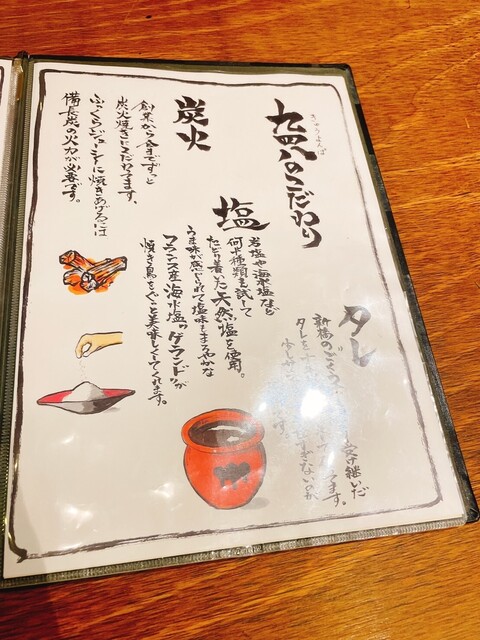 きゅうよんぱ
九四八のこだわり
炭火
創業から今までずっと
炭火焼きにこだわってます。
ふっくらジューシーに焼きあげるには
備長炭の火力が必要です。
塩
岩塩や海水塩など
何十種類も試して
たどり着いた天然塩を使用。
うま味が感じられて塩味もまろやかな
フランス産海水塩"ゲランド"が
焼き鳥をぐっと美味しくしてくれます。
タレ
新橋のごくつ 受け継いだ
タレを ます。
少し すぎないのが
す。